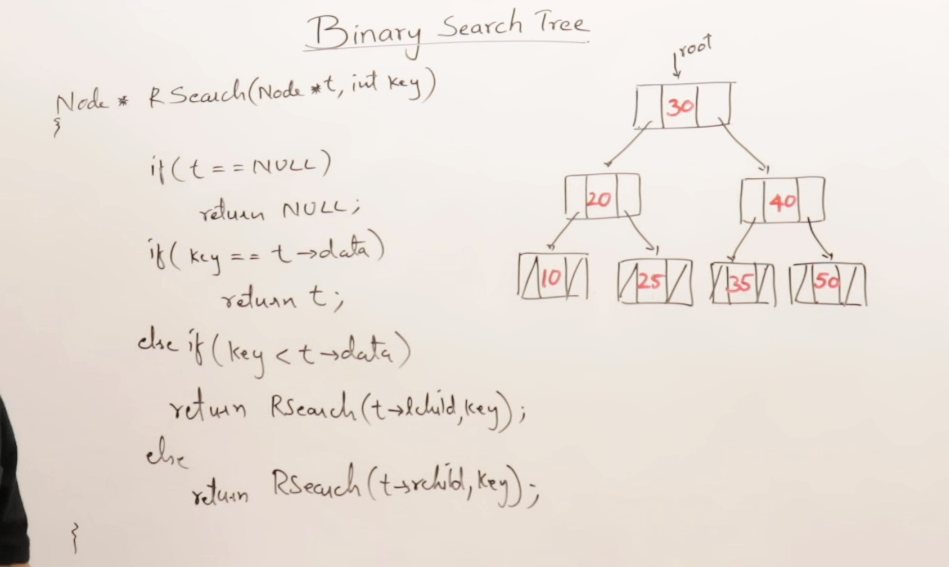 Binary Search Tree
Node * RSearch(Node *t, int key)
{
if(t == NULL)
return NULL;
if(key == t→data)
return t;
else if(key < t→data)
return RSearch(t→lchild, key);
else
return RSearch(t→rchild, key);
}
root
30
20 40
10 25 35 50